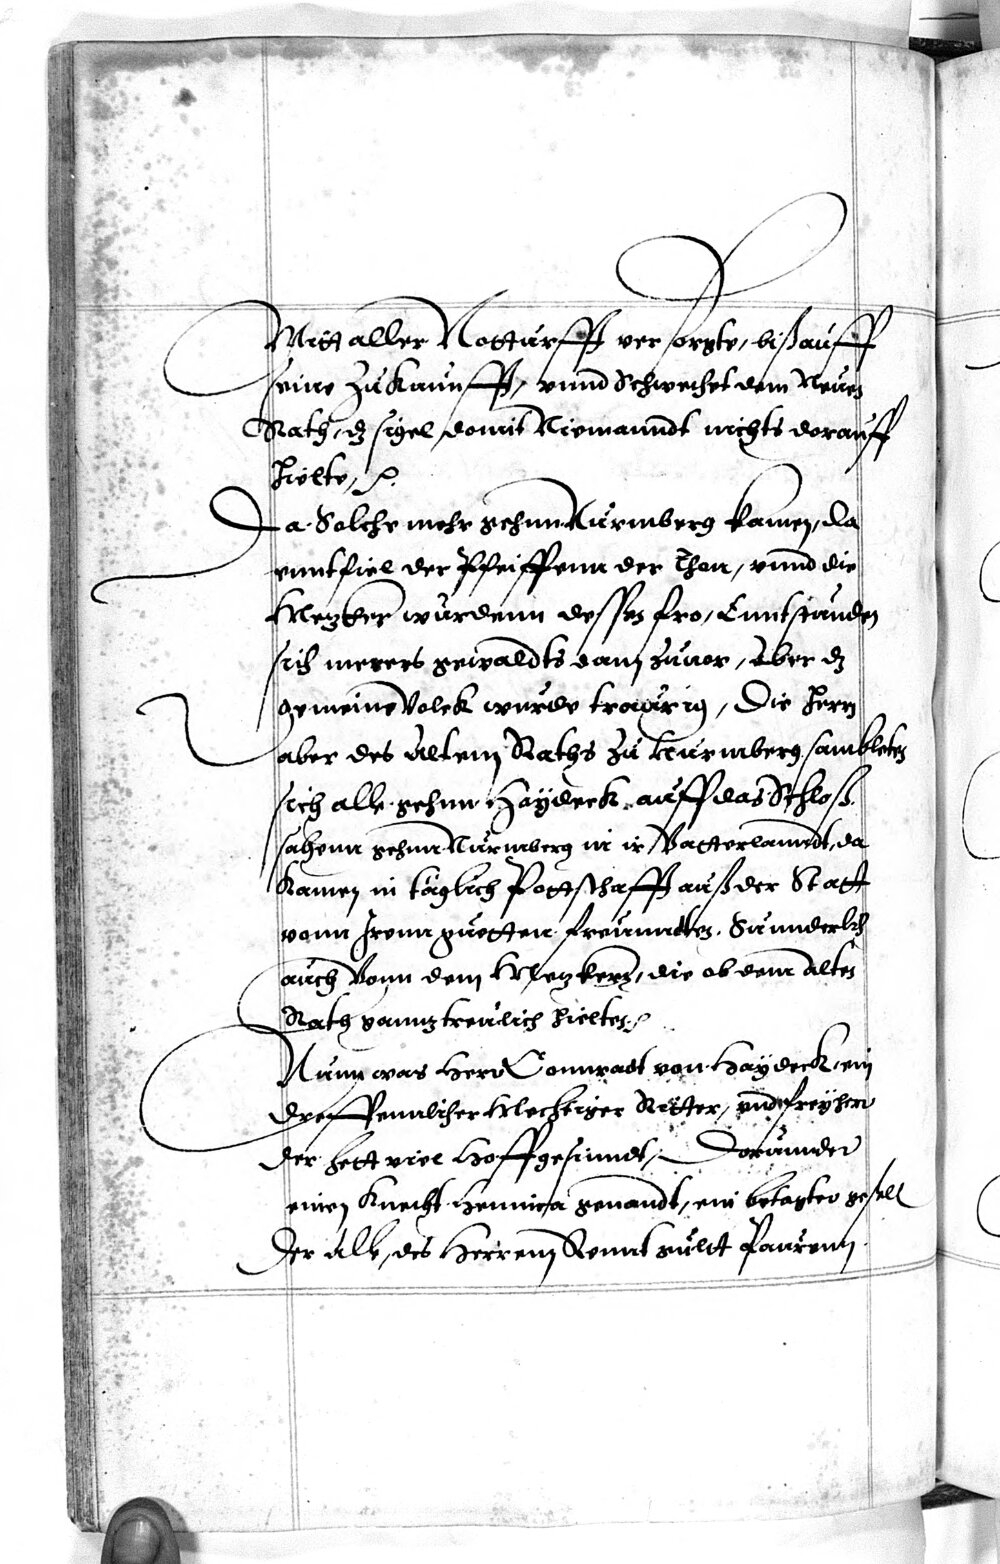 Mitt aller Notturfft versorgte, biß auff
seine zukaunfft, vnnd Schwechet dem Neuen
Rath, dz sigel domit Niemanndt nichts dorauff
hielte,
Da Solche mehr gehnn Nürmberg kamen, da
enntfiel der Pfeiffenn der Thon, vnnd die
Metzker wurdenn dessen fro, Enntstunden
sich merers gewaldts dann zuuor, Aber dz
gemeine Volck wurde traurig, Die Herrn
aber des Altenn Raths zu Nurmberg, sambleten
sich alle gehnn Haydeck auff das Schloß
sahenn gehnn Nürmberg in ir Vatterlanndt, da
Kamen in täglich Pottschafft auß der Statt
vonn Irenn guetten freunndten. Sunnderlich
auch Vonn dem Metzkern, die ob dem Alten
Rath ganntz treulich hielten
Nunn was Herr Connradt von Haydeck, ein
dreffennlicher Mechtiger Ritter, vnd freyherr
der hett viel Hoffgesinndt, Dorunnder
einen Knecht genandt, ein betagter gesell
Der Alle, des Herrenn Rennt gullt Paurenn